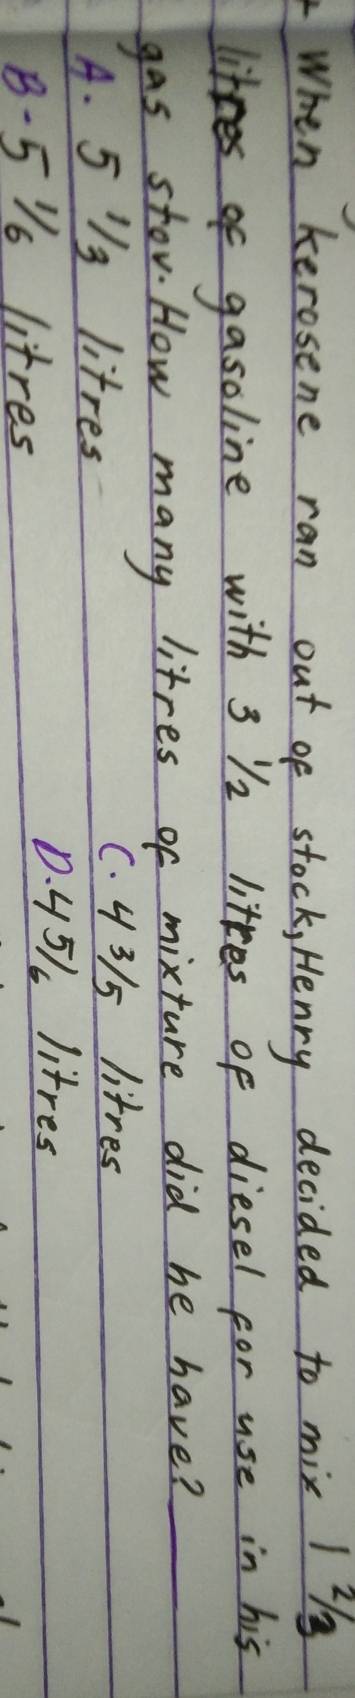 When kerosene ran out of stock, Henry decided to mix 1 2/3
litres of gasoline with 3 1/2 litres of diesel for use in his
gas stov. How many litres of mixture did he have?
A. 5 1/3 litres C. 4 3/5 litres
B. 5 1/6 litres D. 4 5/6 litres